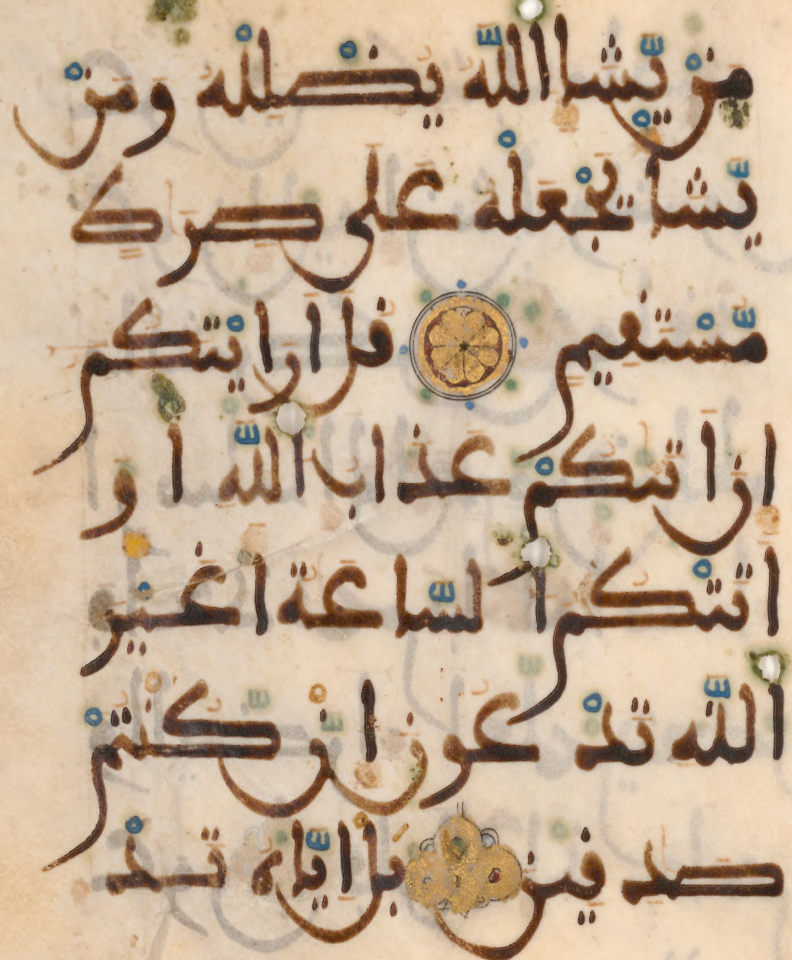 مَنْ يَّشَإِ اللَّهُ يُضْلِلْهُ وَمَنْ
يَّشَأْ يَجْعَلْهُ عَلَىٰ صِرَٰطٍ
مُّسْتَقِيمٍ قُلْ أَرَٰيْتَكُمُ
إِنْ أَتَىٰكُمْ عَذَابُ اللَّهِ أَوْ
أَتَتْكُمُ السَّاعَةُ أَغَيْرَ
اللَّهِ تَدْعُونَ إِن كُنتُمْ
صَٰدِقِينَ بَلْ إِيَّاهُ تَدْ